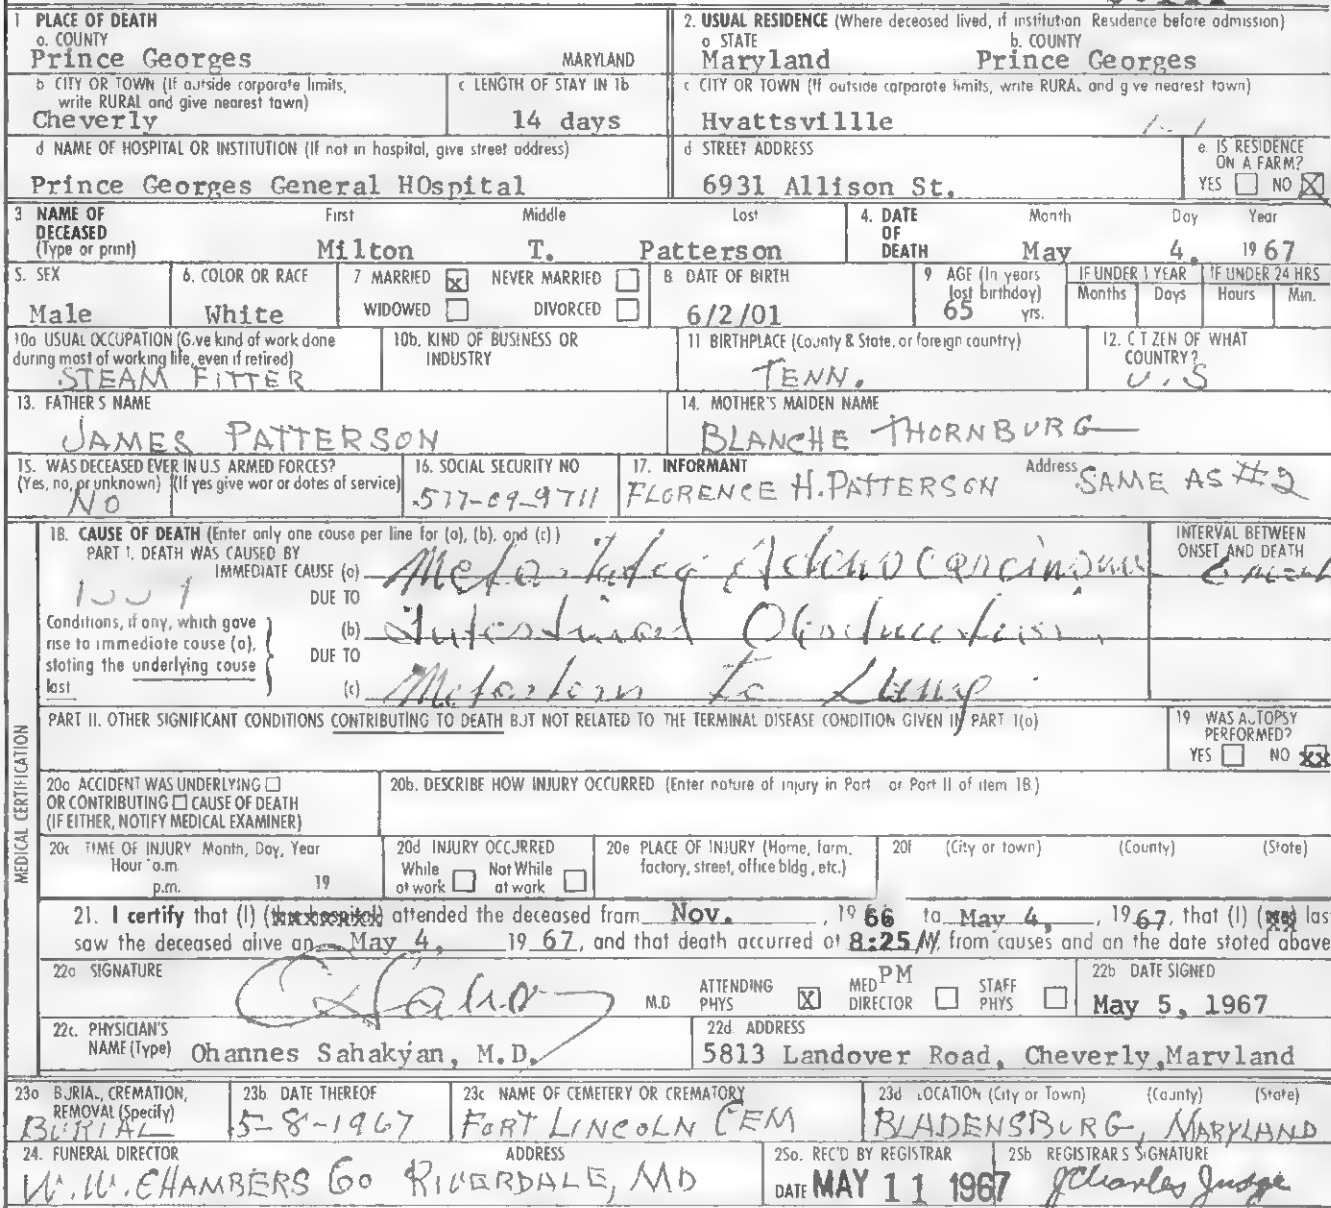 1 PLACE OF DEATH
a. COUNTY
Prince Georges MARYLAND
2. USUAL RESIDENCE (Where deceased lived, if institution Residence before admission)
a STATE b. COUNTY
Maryland Prince Georges
b CITY OR TOWN (If outside corporate limits, write RURAL and give nearest town)
Cheverly
c LENGTH OF STAY IN 1b
14 days
c CITY OR TOWN (If outside corporate limits, write RURAL and give nearest town)
Hyattsvillle
d NAME OF HOSPITAL OR INSTITUTION (If not in hospital, give street address)
Prince Georges General HOspital
d STREET ADDRESS
6931 Allison St.
e. IS RESIDENCE ON A FARM?
YES NO X
3 NAME OF DECEASED (Type or print)
First Middle Last
Milton T. Patterson
4. DATE OF DEATH
Month Day Year
May 4, 1967
5. SEX
Male
6. COLOR OR RACE
White
7 MARRIED x NEVER MARRIED
WIDOWED DIVORCED
8 DATE OF BIRTH
6/2/01
9 AGE (In years last birthday)
65 yrs.
IF UNDER 1 YEAR
Months Days
IF UNDER 24 HRS
Hours Min.
10a USUAL OCCUPATION (Give kind of work done during most of working life, even if retired)
STEAM FITTER
10b. KIND OF BUSINESS OR INDUSTRY
11 BIRTHPLACE (County & State, or foreign country)
TENN.
12. CITIZEN OF WHAT COUNTRY?
U.S
13. FATHER'S NAME
JAMES PATTERSON
14. MOTHER'S MAIDEN NAME
BLANCHE THORNBURG
15. WAS DECEASED EVER IN U.S ARMED FORCES?
(Yes, no, or unknown) (If yes give war or dates of service)
NO
16. SOCIAL SECURITY NO
577-09-9711
17. INFORMANT Address
FLORENCE H. PATTERSON SAME AS #2
MEDICAL CERTIFICATION
18. CAUSE OF DEATH (Enter only one cause per line for (a), (b), and (c))
PART I. DEATH WAS CAUSED BY
IMMEDIATE CAUSE (a) Metastatic Adenocarcinoma
INTERVAL BETWEEN ONSET AND DEATH
DUE TO
Conditions, if any, which gave rise to immediate cause (a), stating the underlying cause last
(b) Intestinal Obstruction
DUE TO
(c) to Lung
PART II. OTHER SIGNIFICANT CONDITIONS CONTRIBUTING TO DEATH BUT NOT RELATED TO THE TERMINAL DISEASE CONDITION GIVEN IN PART I(a)
19 WAS AUTOPSY PERFORMED?
YES NO xx
20a ACCIDENT WAS UNDERLYING
OR CONTRIBUTING CAUSE OF DEATH
(IF EITHER, NOTIFY MEDICAL EXAMINER)
20b. DESCRIBE HOW INJURY OCCURRED (Enter nature of injury in Part or Part II of item 18.)
20c TIME OF INJURY Month, Day, Year
Hour a.m.
p.m. 19
20d INJURY OCCURRED
While at work Not While at work
20e PLACE OF INJURY (Home, farm, factory, street, office bldg, etc.)
20f (City or town) (County) (State)
21. I certify that (I) (the hospital) attended the deceased from Nov., 1966 to May 4, 1967, that (I) (we) las
saw the deceased alive on May 4, 1967, and that death occurred at 8:25 M, from causes and on the date stated above
22a SIGNATURE
M.D
ATTENDING PHYS X MED DIRECTOR STAFF PHYS
PM
22b DATE SIGNED
May 5, 1967
22c. PHYSICIAN'S NAME (Type) Ohannes Sahakyan, M.D.
22d. ADDRESS
5813 Landover Road, Cheverly,Maryland
23a BURIAL, CREMATION, REMOVAL (Specify)
BURIAL
23b. DATE THEREOF
5-8-1967
23c NAME OF CEMETERY OR CREMATORY
FORT LINCOLN CEM
23d LOCATION (City or Town) (County) (State)
BLADENSBURG, MARYLAND
24. FUNERAL DIRECTOR ADDRESS
W. W. CHAMBERS Co RIVERDALE, MD
25a. REC'D BY REGISTRAR
DATE MAY 11 1967
25b REGISTRAR'S SIGNATURE
J Charles Judge